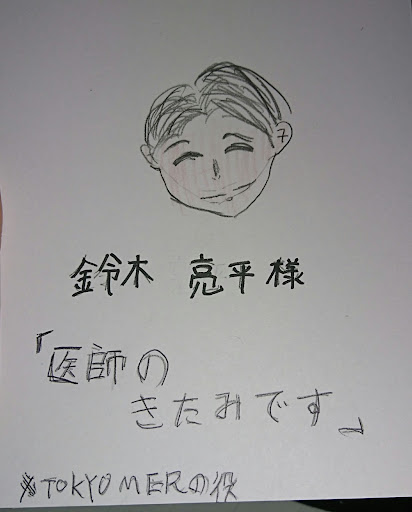 鈴木 亮平様
「医師の
きたみです」
※TOKYO MERの役